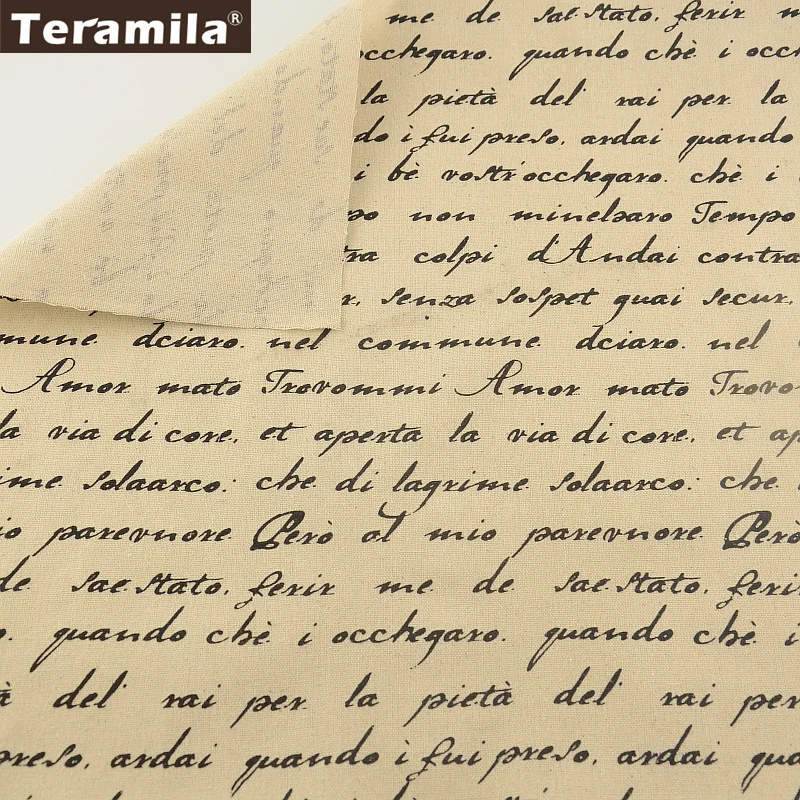 Teramila®
me de sae stato, ferir m
occhegaro. quando chè i occh
la pietà del' rai per la
do i fui preso, ardai quando
i bè vostr'occhegaro. chè i
po non minelsaro Tempo
tra colpi d'Andai contra
r, senza sospet guai secur,
mmune dciaro. nel commune dciaro. nel
Amor mato Trovommi Amor mato Trovo
la via di core, et aperta la via di core, et ap
ime solaarco: che di lagrime solaarco: che
io parevnore Però al mio parevnore Però
de sae stato, ferir me de sae stato, feri
o. quando chè i occhegaro. quando chè i
à del' rai per la pietà del' rai per
preso, ardai quando i fui preso, ardai qua